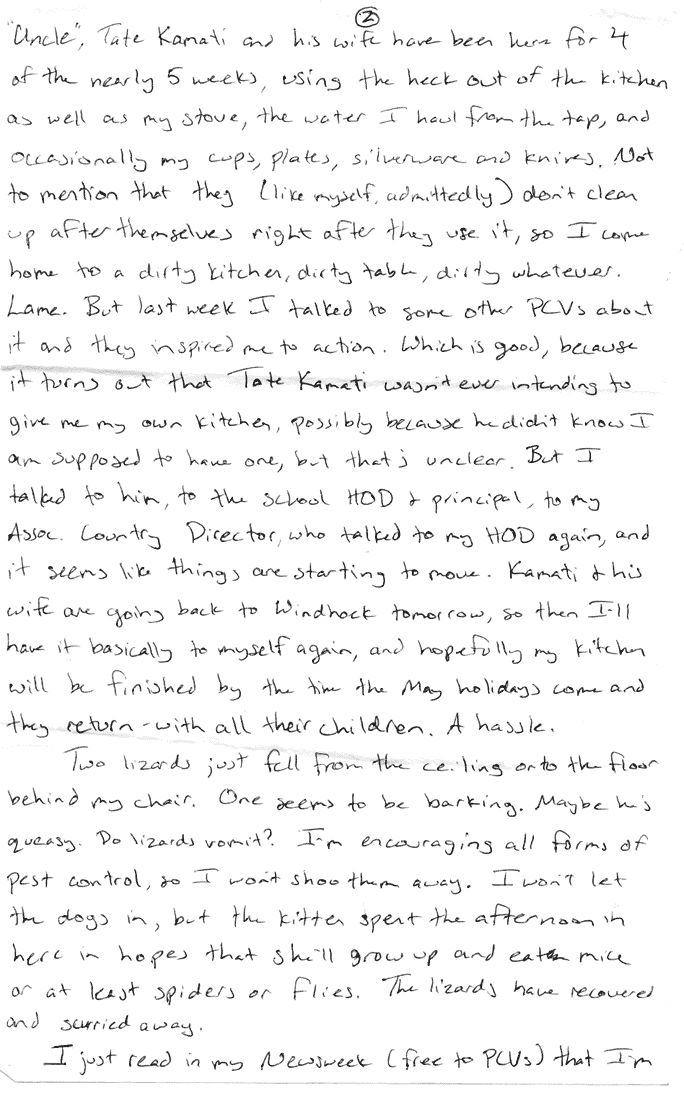 ②
"Uncle", Tate Kamati and his wife have been here for 4
of the nearly 5 weeks, using the heck out of the kitchen
as well as my stove, the water I haul from the tap, and
occasionally my cups, plates, silverware and knives. Not
to mention that they (like myself, admittedly) don't clean
up after themselves right after they use it, so I come
home to a dirty kitchen, dirty table, dirty whatever.
Lame. But last week I talked to some other PCVs about
it and they inspired me to action. Which is good, because
it turns out that Tate Kamati wasn't ever intending to
give me my own kitchen, possibly because he didn't know I
am supposed to have one, but that's unclear. But I
talked to him, to the school HOD & principal, to my
Assoc. Country Director, who talked to my HOD again, and
it seems like things are starting to move. Kamati & his
wife are going back to Windhoek tomorrow, so then I'll
have it basically to myself again, and hopefully my kitchen
will be finished by the time the May holidays come and
they return - with all their children. A hassle.
Two lizards just fell from the ceiling onto the floor
behind my chair. One seems to be barking. Maybe he's
queasy. Do lizards vomit? I'm encouraging all forms of
pest control, so I won't shoo them away. I won't let
the dogs in, but the kitten spent the afternoon in
here in hopes that she'll grow up and eat mice
or at least spiders or flies. The lizards have recovered
and scurried away.
I just read in my Newsweek (free to PCVs) that I'm